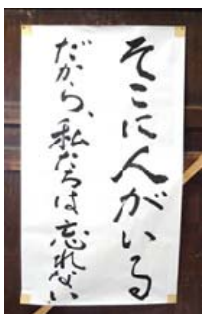 そこに人がいる
だから、私たちは忘れない